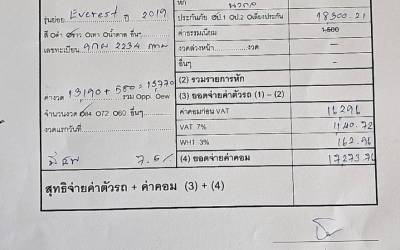 หัก
บวกด
รุ่นย่อย Everest ปี 2019
ประกันภัย ป.1 ป.2 เคียงประกัน 18300.21
สี ดำ ขาว เทา น้ำตาล อื่นๆ
ค่าธรรมเนียม 1,500
เลขทะเบียน 9กฒ 2234 กทม
งวดล่วงหน้า ........ งวด -
อื่นๆ -
(2) รวมรายการหัก
ค่างวด 13190 + 580 = 13770
รวม Opp. Oew
(3) ยอดจ่ายค่าตัวรถ (1) – (2)
จำนวนงวด 84 72 60 อื่นๆ
ค่าคอมก่อน VAT 16296
งวดแรกวันที่
VAT 7% 1140.72
WHT 3% 162.96
7.5%
(4) ยอดจ่ายค่าคอม 17273.76
สุทธิจ่ายค่าตัวรถ + ค่าคอม (3) + (4)